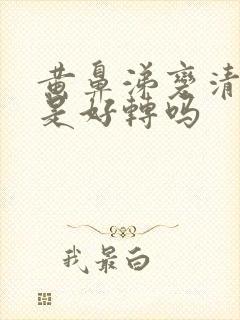 黄鼻涕变清
是好轉吗
我最白